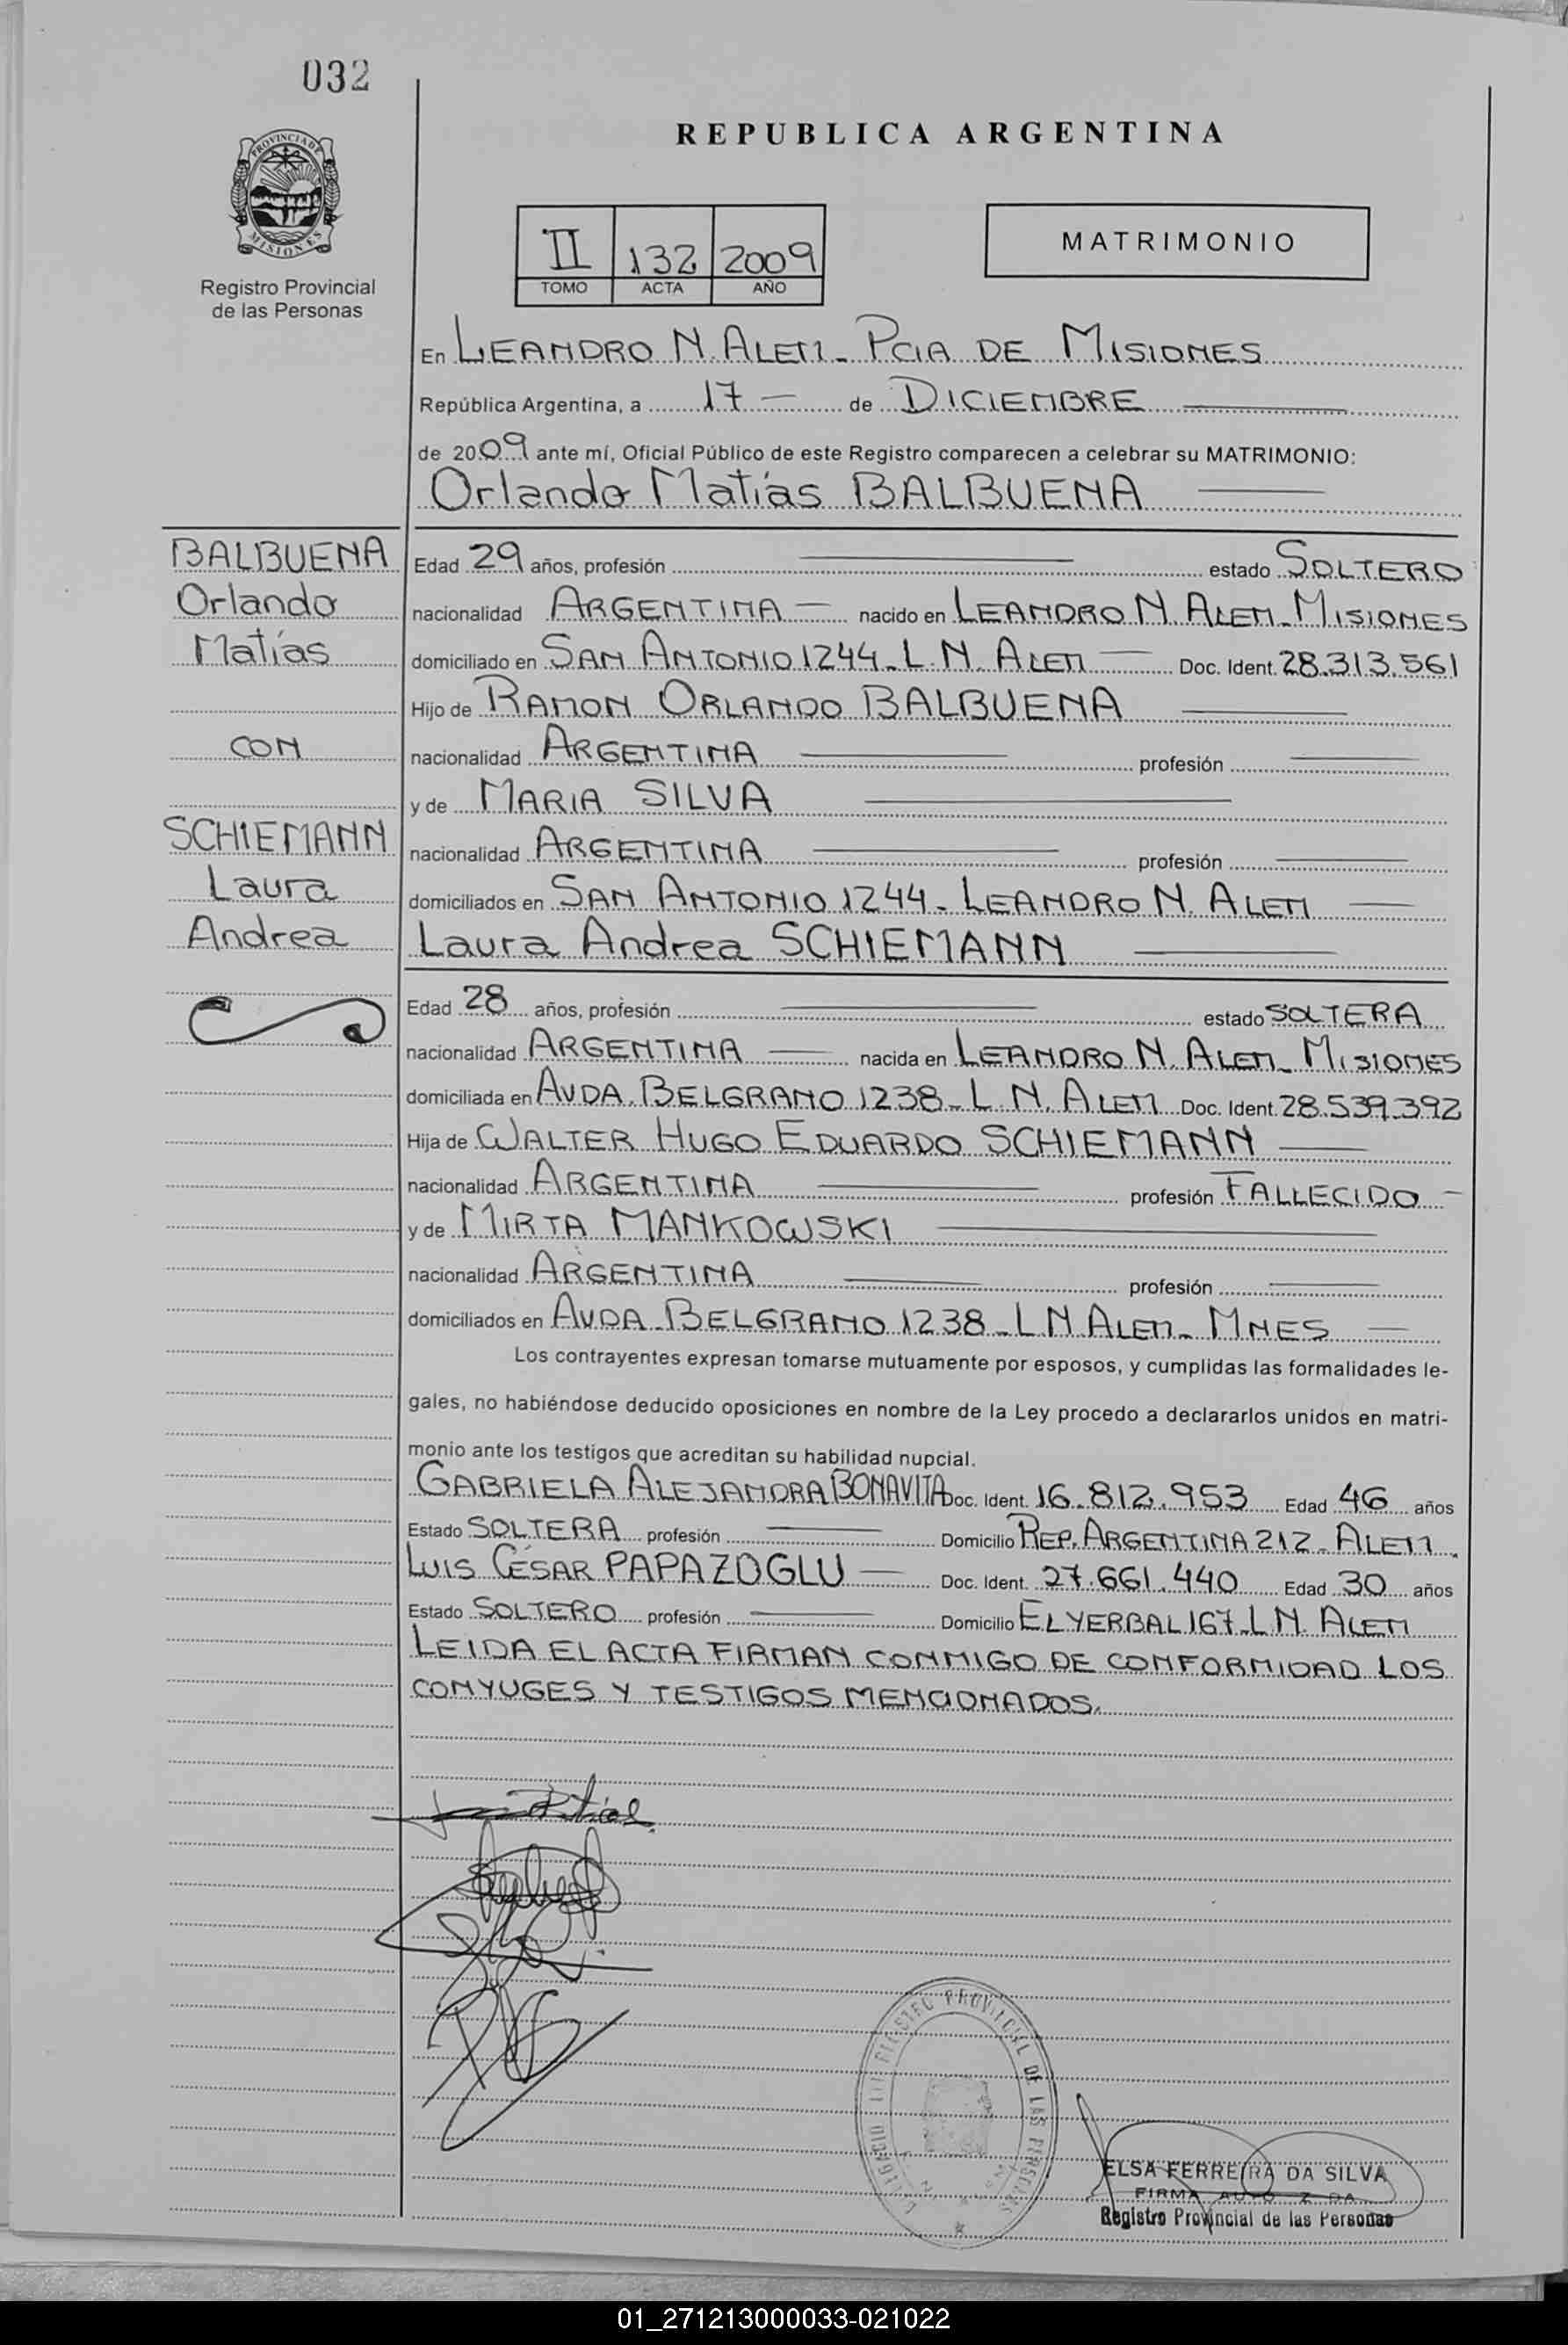 032
PROVINCIA DE
MISIONES
Registro Provincial
de las Personas
REPUBLICA ARGENTINA
II 132 2009
TOMO ACTA AÑO
MATRIMONIO
En LEANDRO N. ALEM - PCIA DE MISIONES
República Argentina, a 17 — de DICIEMBRE
de 2009 ante mí, Oficial Público de este Registro comparecen a celebrar su MATRIMONIO:
Orlando Matías BALBUENA
BALBUENA
Orlando
Matías
CON
SCHIEMANN
Laura
Andrea
Edad 29 años, profesión — estado SOLTERO
nacionalidad ARGENTINA — nacido en LEANDRO N. ALEM - MISIONES
domiciliado en SAN ANTONIO 1244 - L. N. ALEM — Doc. Ident. 28.313.561
Hijo de RAMON ORLANDO BALBUENA
nacionalidad ARGENTINA — profesión —
y de MARIA SILVA
nacionalidad ARGENTINA — profesión —
domiciliados en SAN ANTONIO 1244 - LEANDRO N. ALEM —
Laura Andrea SCHIEMANN
Edad 28 años, profesión — estado SOLTERA
nacionalidad ARGENTINA — nacida en LEANDRO N. ALEM - MISIONES
domiciliada en AVDA. BELGRANO 1238 - L. N. ALEM Doc. Ident. 28.539.392
Hija de WALTER HUGO EDUARDO SCHIEMANN —
nacionalidad ARGENTINA — profesión FALLECIDO -
y de MIRTA MANKOWSKI
nacionalidad ARGENTINA — profesión —
domiciliados en AVDA. BELGRANO 1238 - L N ALEM - MNES —
Los contrayentes expresan tomarse mutuamente por esposos, y cumplidas las formalidades le-
gales, no habiéndose deducido oposiciones en nombre de la Ley procedo a declararlos unidos en matri-
monio ante los testigos que acreditan su habilidad nupcial.
GABRIELA ALEJANDRA BONAVITA Doc. Ident. 16.812.953 Edad 46 años
Estado SOLTERA profesión — Domicilio REP. ARGENTINA 212 - ALEM.
LUIS CÉSAR PAPAZOGLU — Doc. Ident. 27.661.440 Edad 30 años
Estado SOLTERO profesión — Domicilio EL YERBAL 167 - L N. ALEM
LEIDA EL ACTA FIRMAN CONMIGO DE CONFORMIDAD LOS
CONYUGES Y TESTIGOS MENCIONADOS.
REGISTRO PROVINCIAL DE LAS PERSONAS
ELSA FERREIRA DA SILVA
FIRMA
Registro Provincial de las Personas
01_271213000033-021022